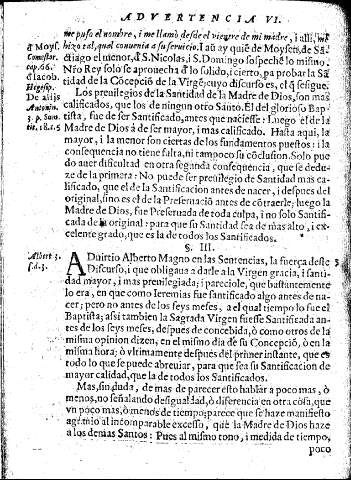 ADVERTENCIA VI.
me puso el nombre, i me llamò desde el vientre de mi madre, i alli, me
hizo tal, qual convenia a su servicio. I aũ ay quiẽ de Moyses, de Sã-
ctiago el menor, d S. Nicolas, i S. Domingo sospechè lo mismo.
Nr̃o Rey solo se aprovecha d lo solido, i cierto, pa probar la Sã
tidad de la Cõcepciõ de la Virgẽ; cuyo discurso es, el q̃ se sigue.
Los previlegios de la Santidad de la Madre de Dios, son mas
calificados, que los de ningun otro Santo. El del glorioso Bap-
tista, fue de ser Santificado, antes que naciesse: Luego el de la
Madre de Dios à de ser mayor, i mas calificado. Hasta aqui, la
mayor, i la menor son ciertas de los fundamentos puestos: i la
consequencia no tiene falta, ni tampoco su cõclusion. Solo pue-
do aver dificultad en otra segunda consequencia, que se dedu-
ze de la primera: No puede ser previlegio de Santidad mas ca-
lificado, que el de la Santificacion antes de nacer, i despues del
original, sino es el de la Preservaciõ antes de cõtraerle; luego la
Madre de Dios, fue Preservada de toda culpa, i no solo Santifi-
cada de la original: para que su Santidad sea de mas alto, i ex-
celente grado, que es la de todos los Santificados.
§. III.
ADvirtio Alberto Magno en las Sentencias, la fuerça deste
Discurso, i que obligava a darle a la Virgen gracia, i santi-
dad mayor, i mas previlegiada; i pareciole, que bastantemente
lo era, en que como Ieremias fue santificado algo antes de na-
cer; pero no antes de los seys meses, a el qual tiempo lo fue el
Baptista; assi tambien la Sagrada Virgen fuesse Santificada an-
tes de los seys meses, despues de concebida, ò como otros de la
misma opinion dizen, en el mismo dia de su Concepciõ, ò en la
misma hora; ò vltimamente despues del primer instante, que es
todo lo que se puede abreviar, para que sea su Santificacion de
mayor calidad, que la de todos los Santificados.
Mas, sin duda, de mas de parecer esto hablar a poco mas, ò
menos, no señalando desigualdad, ò diferencia en otra cosa, que
vn poco mas, ò menos de tiempo; parece que se haze manifiesto
agravio al incomparable excesso, que la Madre de Dios haze
a los demas Santos: Pues al mismo tono, i medida de tiempo,
poco
d Moys.
Comestor.
cap. 66.
d Iacob.
Hegesip.
De aliis
Antonin.
3. p. Sum.
tit. 18. c. 5
Albert 3.
s. d. 3.
5